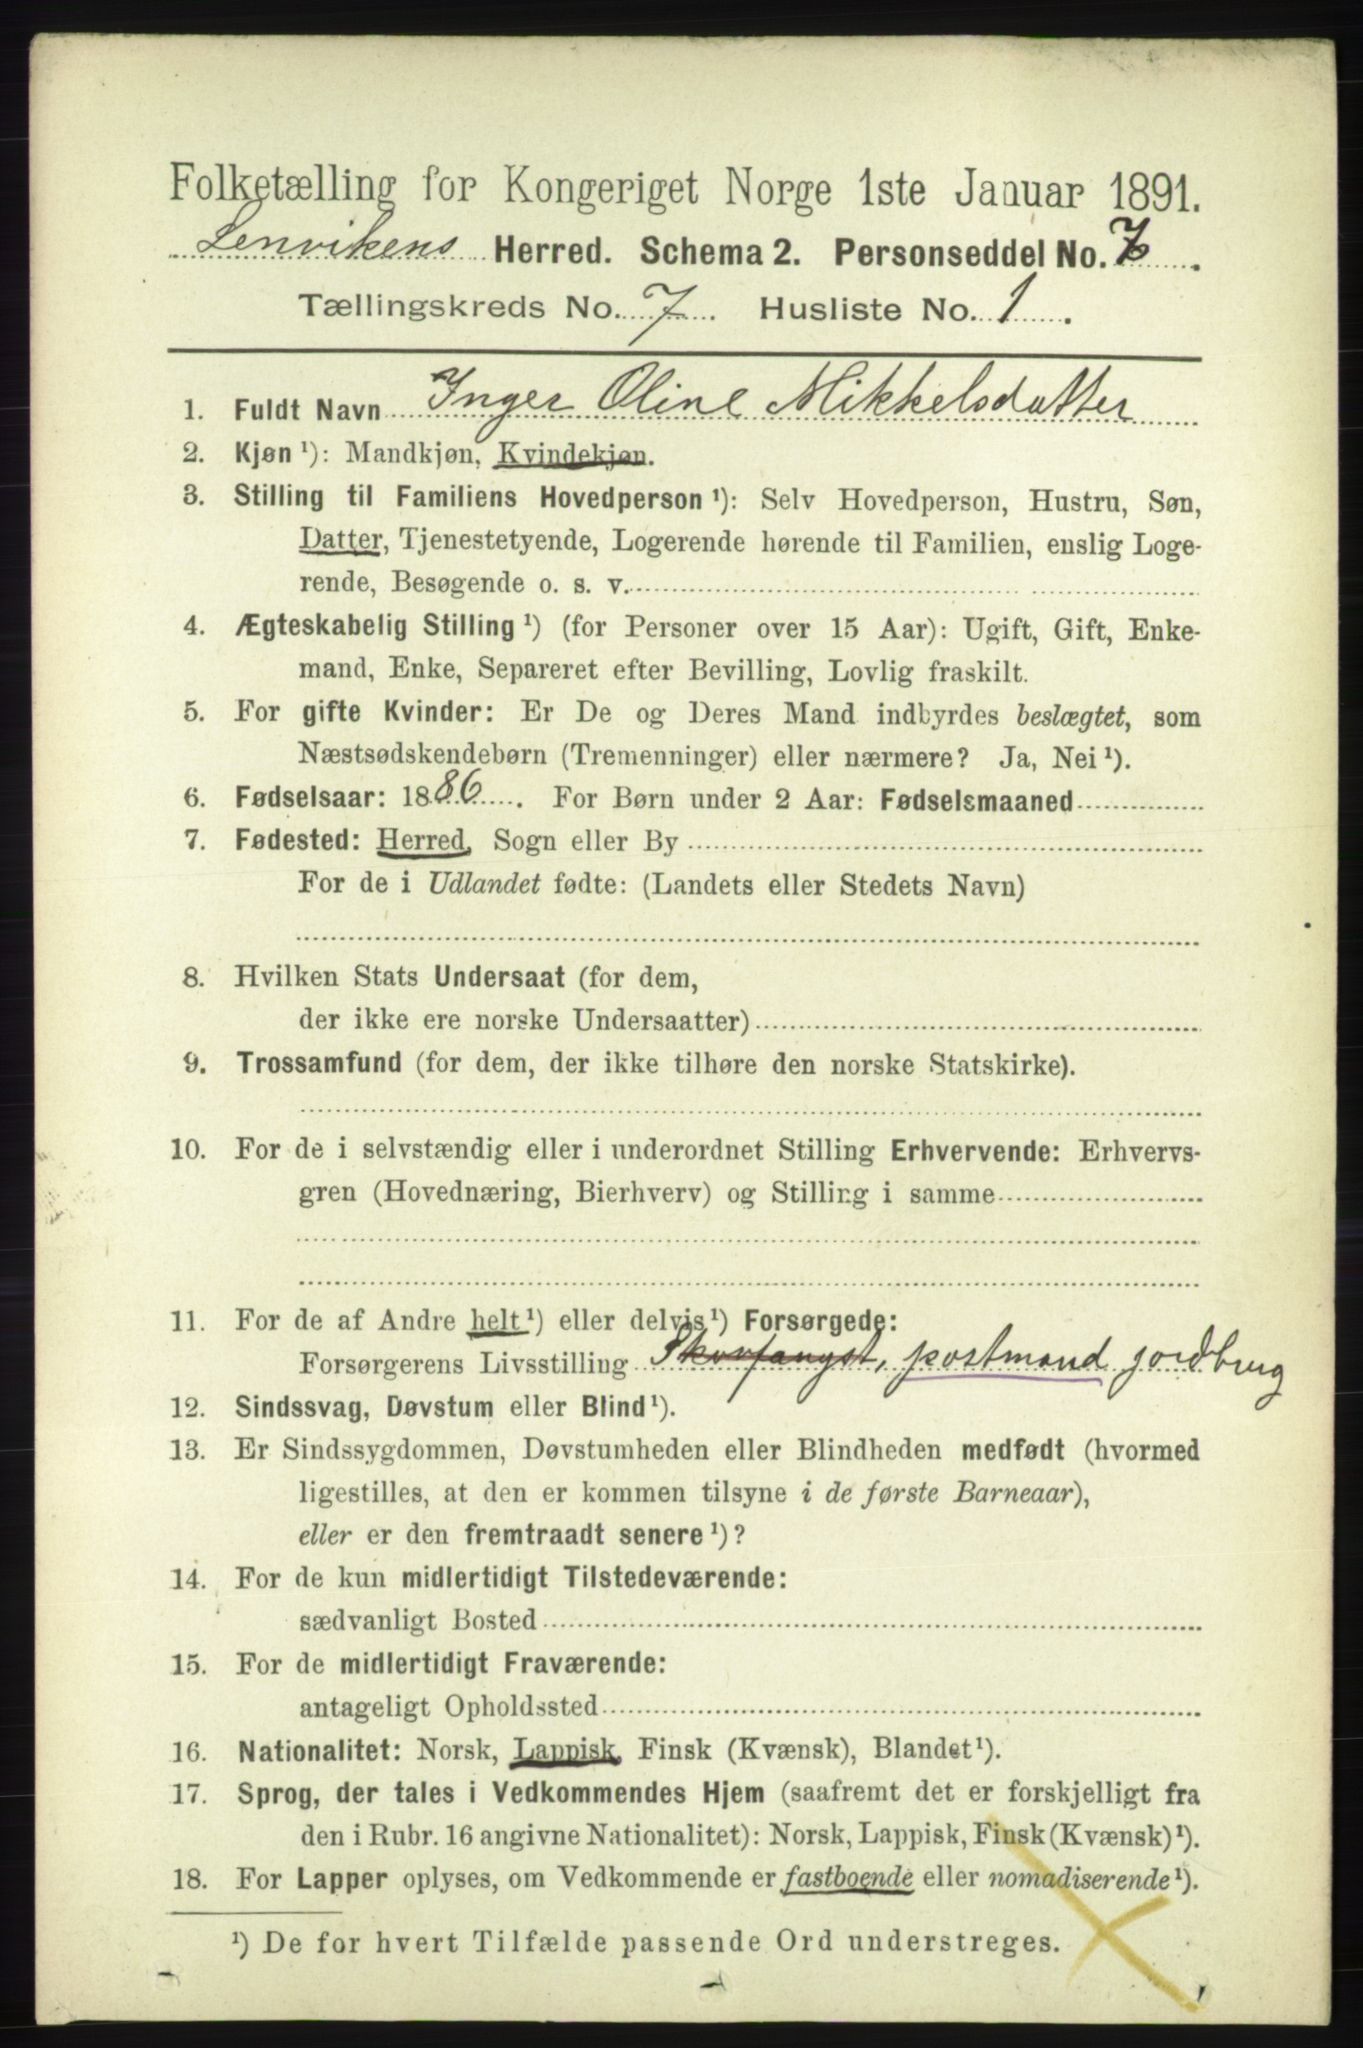 Folketælling for Kongeriget Norge 1ste Januar 1891.
Lenvikens Herred. Schema 2. Personseddel No. 7.
Tællingskreds No. 7. Husliste No. 1.
1. Fuldt Navn Inger Oline Mikkelsdatter
2. Kjøn ¹): Mandkjøn, Kvindekjøn.
3. Stilling til Familiens Hovedperson ¹): Selv Hovedperson, Hustru, Søn,
Datter, Tjenestetyende, Logerende hørende til Familien, enslig Loge-
rende, Besøgende o. s. v.
4. Ægteskabelig Stilling ¹) (for Personer over 15 Aar): Ugift, Gift, Enke-
mand, Enke, Separeret efter Bevilling, Lovlig fraskilt.
5. For gifte Kvinder: Er De og Deres Mand indbyrdes beslægtet, som
Næstsødskendebørn (Tremenninger) eller nærmere? Ja, Nei ¹).
6. Fødselsaar: 1886. For Børn under 2 Aar: Fødselsmaaned
7. Fødested: Herred, Sogn eller By
For de i Udlandet fødte: (Landets eller Stedets Navn)
8. Hvilken Stats Undersaat (for dem,
der ikke ere norske Undersaatter)
9. Trossamfund (for dem, der ikke tilhøre den norske Statskirke).
10. For de i selvstændig eller i underordnet Stilling Erhvervende: Erhvervs-
gren (Hovednæring, Bierhverv) og Stilling i samme
11. For de af Andre helt ¹) eller delvis ¹) Forsørgede:
Forsørgerens Livsstilling postmand jordbrug
12. Sindssvag, Døvstum eller Blind ¹).
13. Er Sindssygdommen, Døvstumheden eller Blindheden medfødt (hvormed
ligestilles, at den er kommen tilsyne i de første Barneaar),
eller er den fremtraadt senere ¹)?
14. For de kun midlertidigt Tilstedeværende:
sædvanligt Bosted
15. For de midlertidigt Fraværende:
antageligt Opholdssted
16. Nationalitet: Norsk, Lappisk, Finsk (Kvænsk), Blandet ¹).
17. Sprog, der tales i Vedkommendes Hjem (saafremt det er forskjelligt fra
den i Rubr. 16 angivne Nationalitet): Norsk, Lappisk, Finsk (Kvænsk) ¹).
18. For Lapper oplyses, om Vedkommende er fastboende eller nomadiserende ¹).
¹) De for hvert Tilfælde passende Ord understreges.